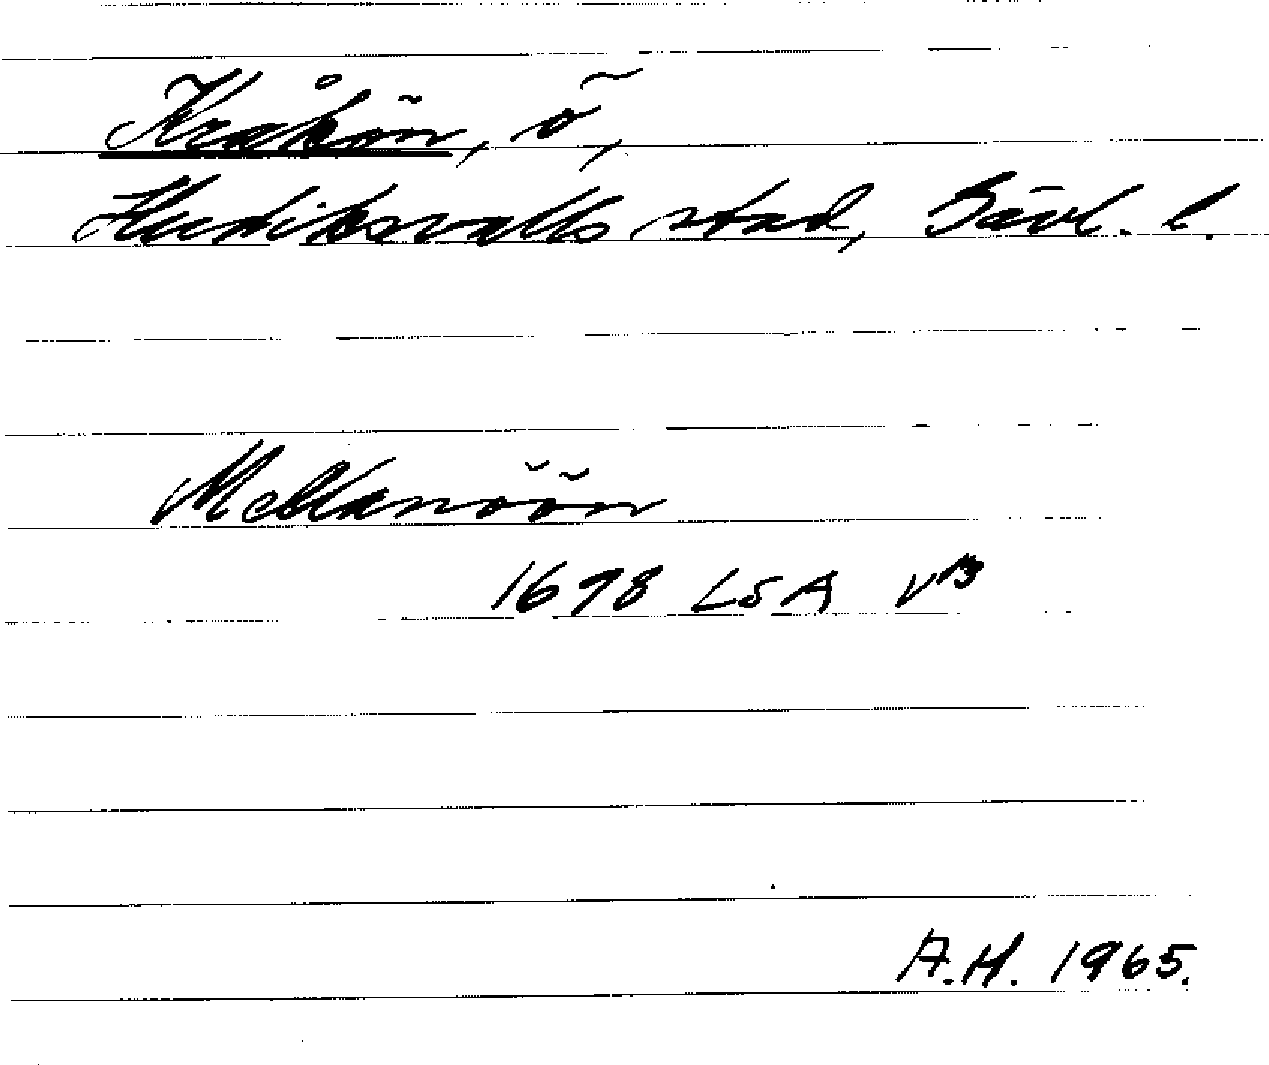 Kråkön, ö,
Hudiksvalls stad, Gävl. l.
Mellanöön
1698 LSA V¹³
A.H. 1965.